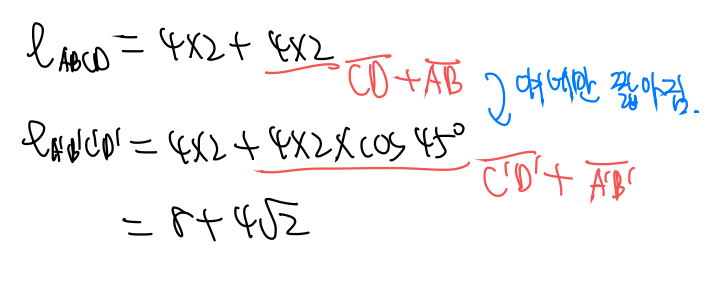 ℓABCD = 4×2 + 4×2 CD + AB
여기만 짧아짐.
ℓA'B'C'D' = 4×2 + 4×2×cos 45° C'D' + A'B'
= 8+4√2